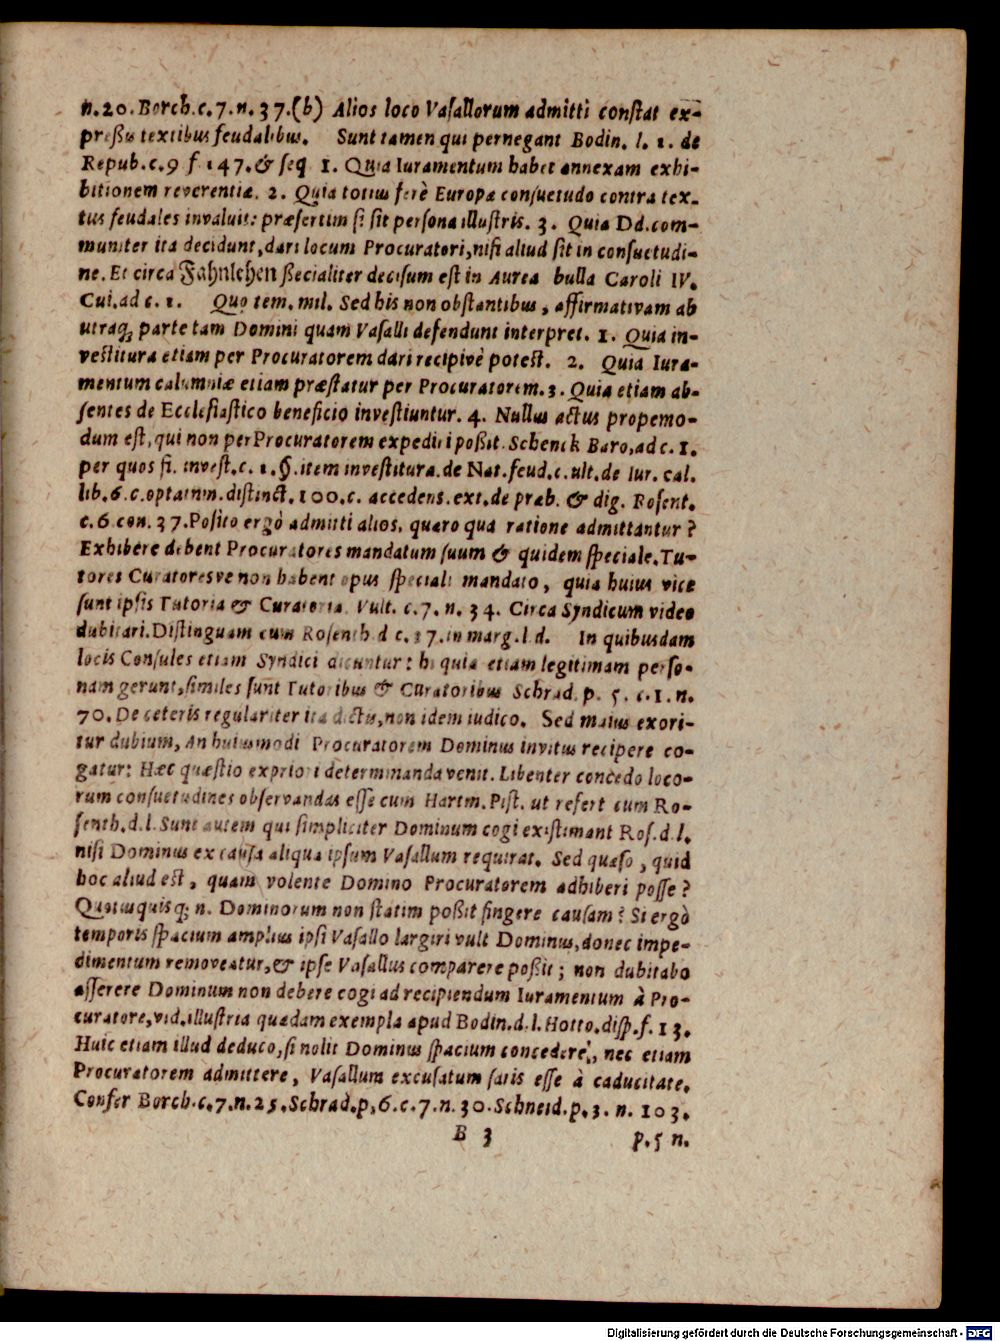 n.20. Borch.c.7.n.37.(b) Alios loco Vasallorum admitti constat ex-
preßis textibus feudalibus. Sunt tamen qui pernegant Bodin. l. 1. de
Repub.c.9 f 147.& seq 1. Quia Iuramentum habet annexam exhi-
bitionem reverentiæ. 2. Quia totius ferè Europæ consuetudo contra tex-
tus feudales invaluit: præsertim si sit persona illustris. 3. Quia Dd.com-
muniter ita decidunt,dari locum Procuratori,nisi aliud sit in consuetudi-
ne. Et circa Fahnlehen specialiter decisum est in Aurea bulla Caroli IV.
Cui.ad c. 1. Quo tem. mil. Sed his non obstantibus, affirmativam ab
utraq; parte tam Domini quam Vasalli defendunt interpret. 1. Quia in-
vestitura etiam per Procuratorem dari recipivè potest. 2. Quia Iura-
mentum calumniæ etiam præstatur per Procuratorem.3. Quia etiam ab-
sentes de Ecclesiastico beneficio investiuntur. 4. Nullus actus propemo-
dum est,qui non per Procuratorem expediri poßit. Schenck Baro,ad c. 1.
per quos fi. invest.c. 1.§.item investitura.de Nat.feud.c.ult.de Iur. cal.
lib.6.c.optatum.distinct.100.c. accedens.ext.de præb. & dig. Rosent.
c.6 con. 37.Posito ergò admitti alios, quæro qua ratione admittantur?
Exhibere debent Procuratores mandatum suum & quidem speciale.Tu-
tores Curatoresve non habent opus speciali mandato, quia huius vice
sunt ipsis Tutoria & Curatoria. Vult. c.7. n. 34. Circa Syndicum video
dubitari.Distinguam cum Rosenth d c.37.in marg.l d. In quibusdam
locis Consules etiam Syndici dicuntur: hi quia etiam legitimam perso-
nam gerunt,similes sunt Tutoribus & Curatoribus Schrad. p. 5. c.1. n.
70. De ceteris regulariter ita dictis,non idem iudico. Sed maius exori-
tur dubium, An huiusmodi Procuratorem Dominus invitus recipere co-
gatur: Hæc quæstio ex priori determinanda venit. Libenter concedo loco-
rum consuetudines observandas esse cum Hartm. Pist. ut refert cum Ro-
senth.d.l.Sunt autem qui simpliciter Dominum cogi existimant Ros.d.l.
nisi Dominus ex causa aliqua ipsum Vasallum requirat. Sed quæso, quid
hoc aliud est, quam volente Domino Procuratorem adhiberi posse?
Quotusquisq; n. Dominorum non statim poßit fingere causam? Si ergò
temporis spacium amplius ipsi Vasallo largiri vult Dominus,donec impe-
dimentum removeatur,& ipse Vasallus comparere poßit; non dubitabo
asserere Dominum non debere cogi ad recipiendum Iuramentum à Pro-
curatore,vid.illustria quædam exempla apud Bodin.d.l.Hotto.disp.f. 13.
Huic etiam illud deduco,si nolit Dominus spacium concedere, nec etiam
Procuratorem admittere, Vasallum excusatum satis esse à caducitate.
Confer Borch.c.7.n.25.Schrad.p.6.c.7.n.30.Schneid.p.3. n. 103.
B 3 p.5 n.
Digitalisierung gefördert durch die Deutsche Forschungsgemeinschaft - DFG